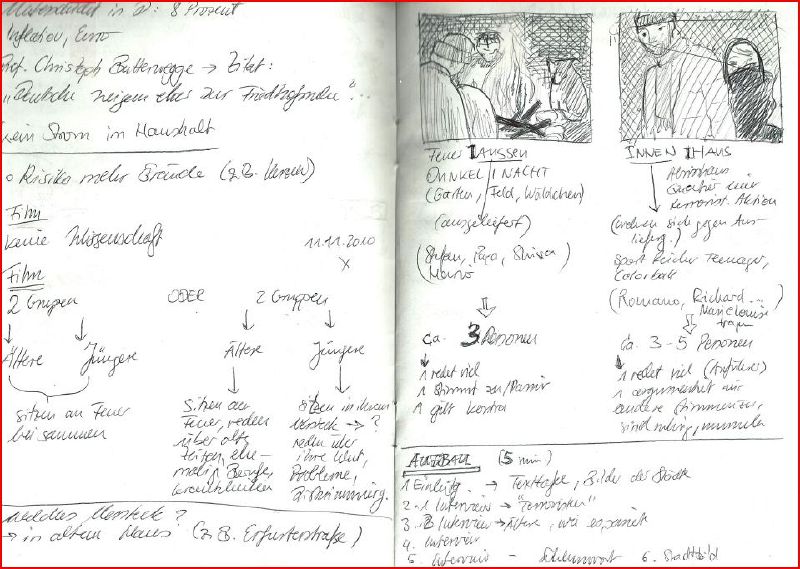 in D: 8 Prozent
Inflation, Euro
Prof. Christoph Butterwegge → Zitat:
"Deutsche neigen eher zur Friedhofsruhe"...
kein Strom im Haushalt
o Risiko mehr Brände (z.B. Kerzen)
Film
keine Wissenschaft
11.11.2010
X
Film
2 Gruppen ODER 2 Gruppen
Ältere Jüngere Ältere Jüngere
sitzen am Feuer
beisammen
Sitzen am
Feuer, reden
über alte
Zeiten, ehe-
malig. Berufe,
Krankheiten
Sitzen in ihrem
Versteck → ?
reden über
ihre Wut,
Probleme,
welches Versteck?
→ in altem Haus (z.B. Erfurterstraße)
Feuer AUSSEN
DUNKEL | NACHT
(Garten, Feld, Wäldchen)
(ausgeliefert)
(Stefan,
Mario
ca. 3 Personen
1 redet viel
1 stimmt zu
1 gibt kontra
INNEN HAUS
Abrisshaus
Quartier einer
terrorist. Aktion
(wehren sich gegen Aus-
lieferg.)
Teenager,
(Romano, Richard...
Marie Louise
fragen
ca. 3-5 Personen
1 redet viel (Anführer)
1 argumentiert mit
andere stimmen zu,
sind ruhig, murmeln
AUFBAU (5 min.)
1 Einleitg. → Texttafel, Bilder der Städte
2. 1 Interview → "Terroristen"
3. Interview → Ältere, wie es
4. Interview
5. Interview - Schlusswort 6. Stadtbild